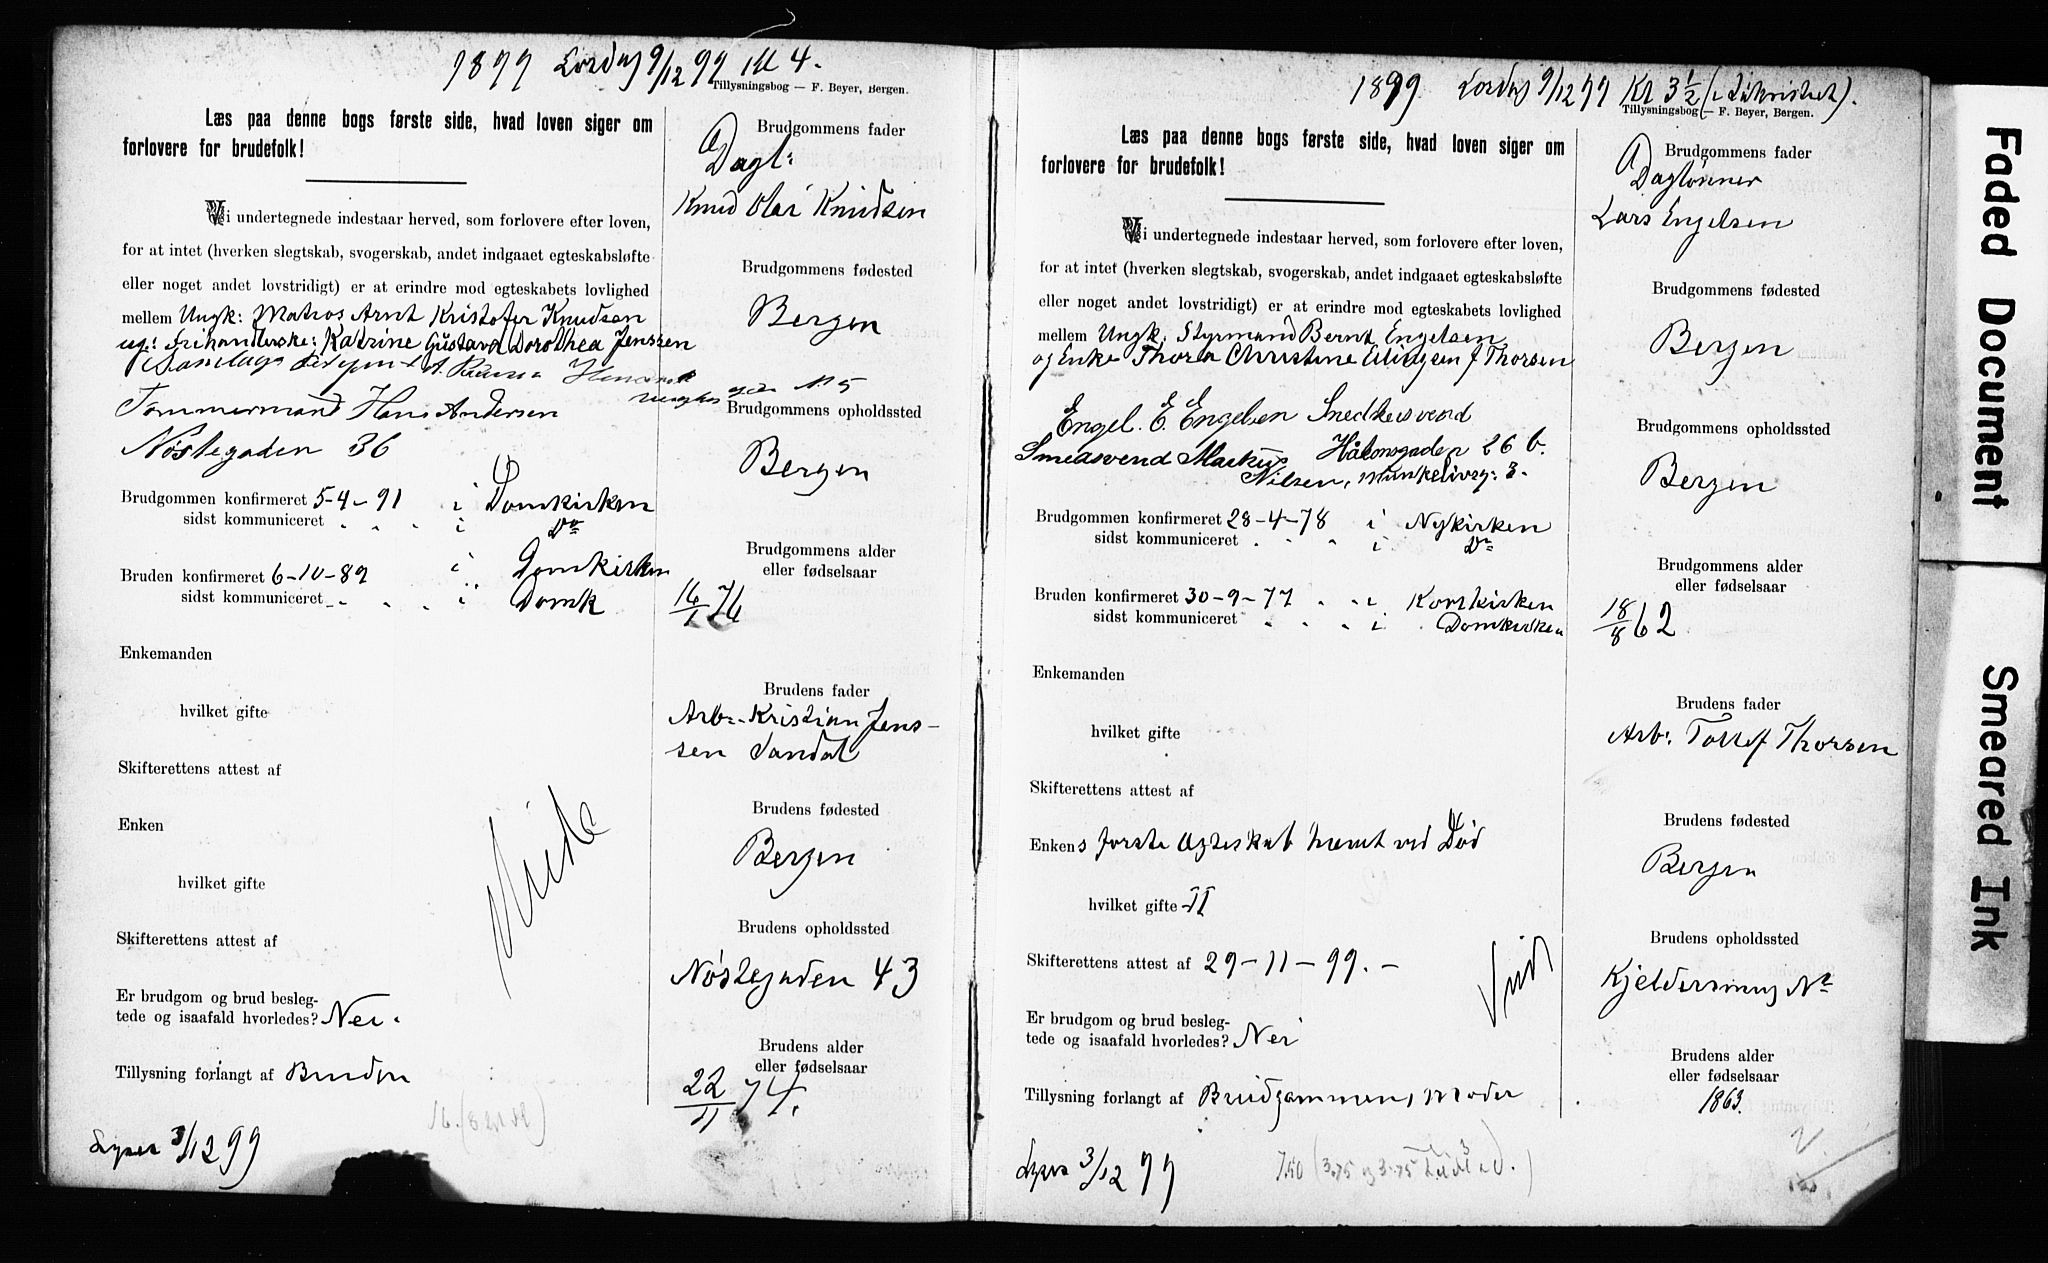 1899 Lørdag 9/12 99 Kl 4.
Tillysningsbog — F. Beyer, Bergen.
Læs paa denne bogs første side, hvad loven siger om
forlovere for brudefolk!
Vi undertegnede indestaar herved, som forlovere efter loven,
for at intet (hverken slegtskab, svogerskab, andet indgaaet egteskabsløfte
eller noget andet lovstridigt) er at erindre mod egteskabets lovlighed
mellem Ungk: Matros Arnt Kristofer Knudsen
og: Frihandlerske: Katrine Gustava Dorothea Jenssen
No 5
Tømmermand Hans Andersen
Nøstegaden 36
Brudgommen konfirmeret 5-4-91 i Domkirken
sidst kommuniceret " " " i Do
Bruden konfirmeret 6-10-89 i Domkirken
sidst kommuniceret " " " i Domk
Enkemanden
hvilket gifte
Skifterettens attest af
Enken
hvilket gifte
Skifterettens attest af
Er brudgom og brud besleg-
tede og isaafald hvorledes? Nei.
Tillysning forlangt af Bruden
Lyses 3/12 99
Brudgommens fader
Dagl:
Knud Olai Knudsen
Brudgommens fødested
Bergen
Brudgommens opholdssted
Bergen
Brudgommens alder
eller fødselsaar
16/1 76
Brudens fader
Arb: Kristian Jens-
sen Sandal
Brudens fødested
Bergen
Brudens opholdssted
Nøstegaden 43
Brudens alder
eller fødselsaar
22/11 74.
1899. Lørdag 9/12 99 Kl 3 1/2 (i Sakristiet).
Tillysningsbog — F. Beyer, Bergen.
Læs paa denne bogs første side, hvad loven siger om
forlovere for brudefolk!
Vi undertegnede indestaar herved, som forlovere efter loven,
for at intet (hverken slegtskab, svogerskab, andet indgaaet egteskabsløfte
eller noget andet lovstridigt) er at erindre mod egteskabets lovlighed
mellem Ungk: Styrmand Bernt Engelsen
og Enke Thora Christine Ellingsen f Thorsen
Engel. E. Engelsen Snedkersvend
Håkonsgaden 26 b.
Smedsvend Markus
Nilsen, Munkelivsg: 3.
Brudgommen konfirmeret 28-4-78 i Nykirken
sidst kommuniceret " " " i Do
Bruden konfirmeret 30-9-77 " " i Korskirken
sidst kommuniceret " " " i Domkirken
Enkemanden
hvilket gifte
Skifterettens attest af
Enkens første Ægteskab hævet ved Død
hvilket gifte II
Skifterettens attest af 29-11-99.-
Er brudgom og brud besleg-
tede og isaafald hvorledes? Nei
Tillysning forlangt af Brudgommens Moder
Lyses 3/12 99
Brudgommens fader
Daglønner
Lars Engelsen
Brudgommens fødested
Bergen
Brudgommens opholdssted
Bergen
Brudgommens alder
eller fødselsaar
18/8 62
Brudens fader
Arb: Thorsen
Brudens fødested
Bergen
Brudens opholdssted
Brudens alder
eller fødselsaar
1863.
Faded Document
Smeared Ink